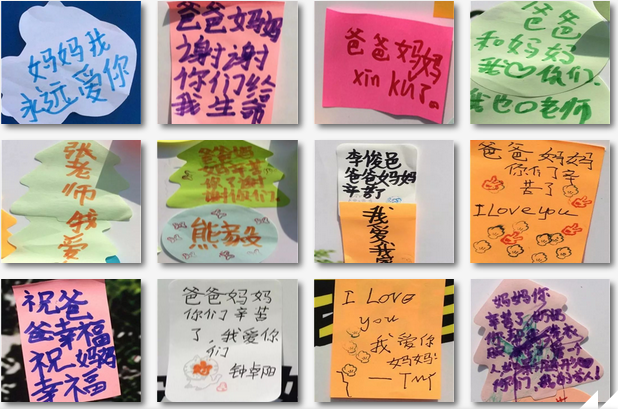 妈妈我
永远爱你
爸爸妈妈
谢谢
你们给
我生命
爸爸妈妈
xin ku了。
爸爸
和妈妈
我♡你们.
我也♡老师
张
老
师
我
爱
爸爸妈
谢谢
你们.
熊
李俊邑
爸爸妈妈
辛苦了
我
爱
我
爸爸妈妈
你们了辛
苦了
I Love you
祝爸
爸幸福
祝妈妈
幸福
爸爸妈妈
你们辛苦
了，我爱你
们
钟卓阳
I Love
you
我爱你
妈妈!
妈妈你
辛苦了
你们,我的家人!